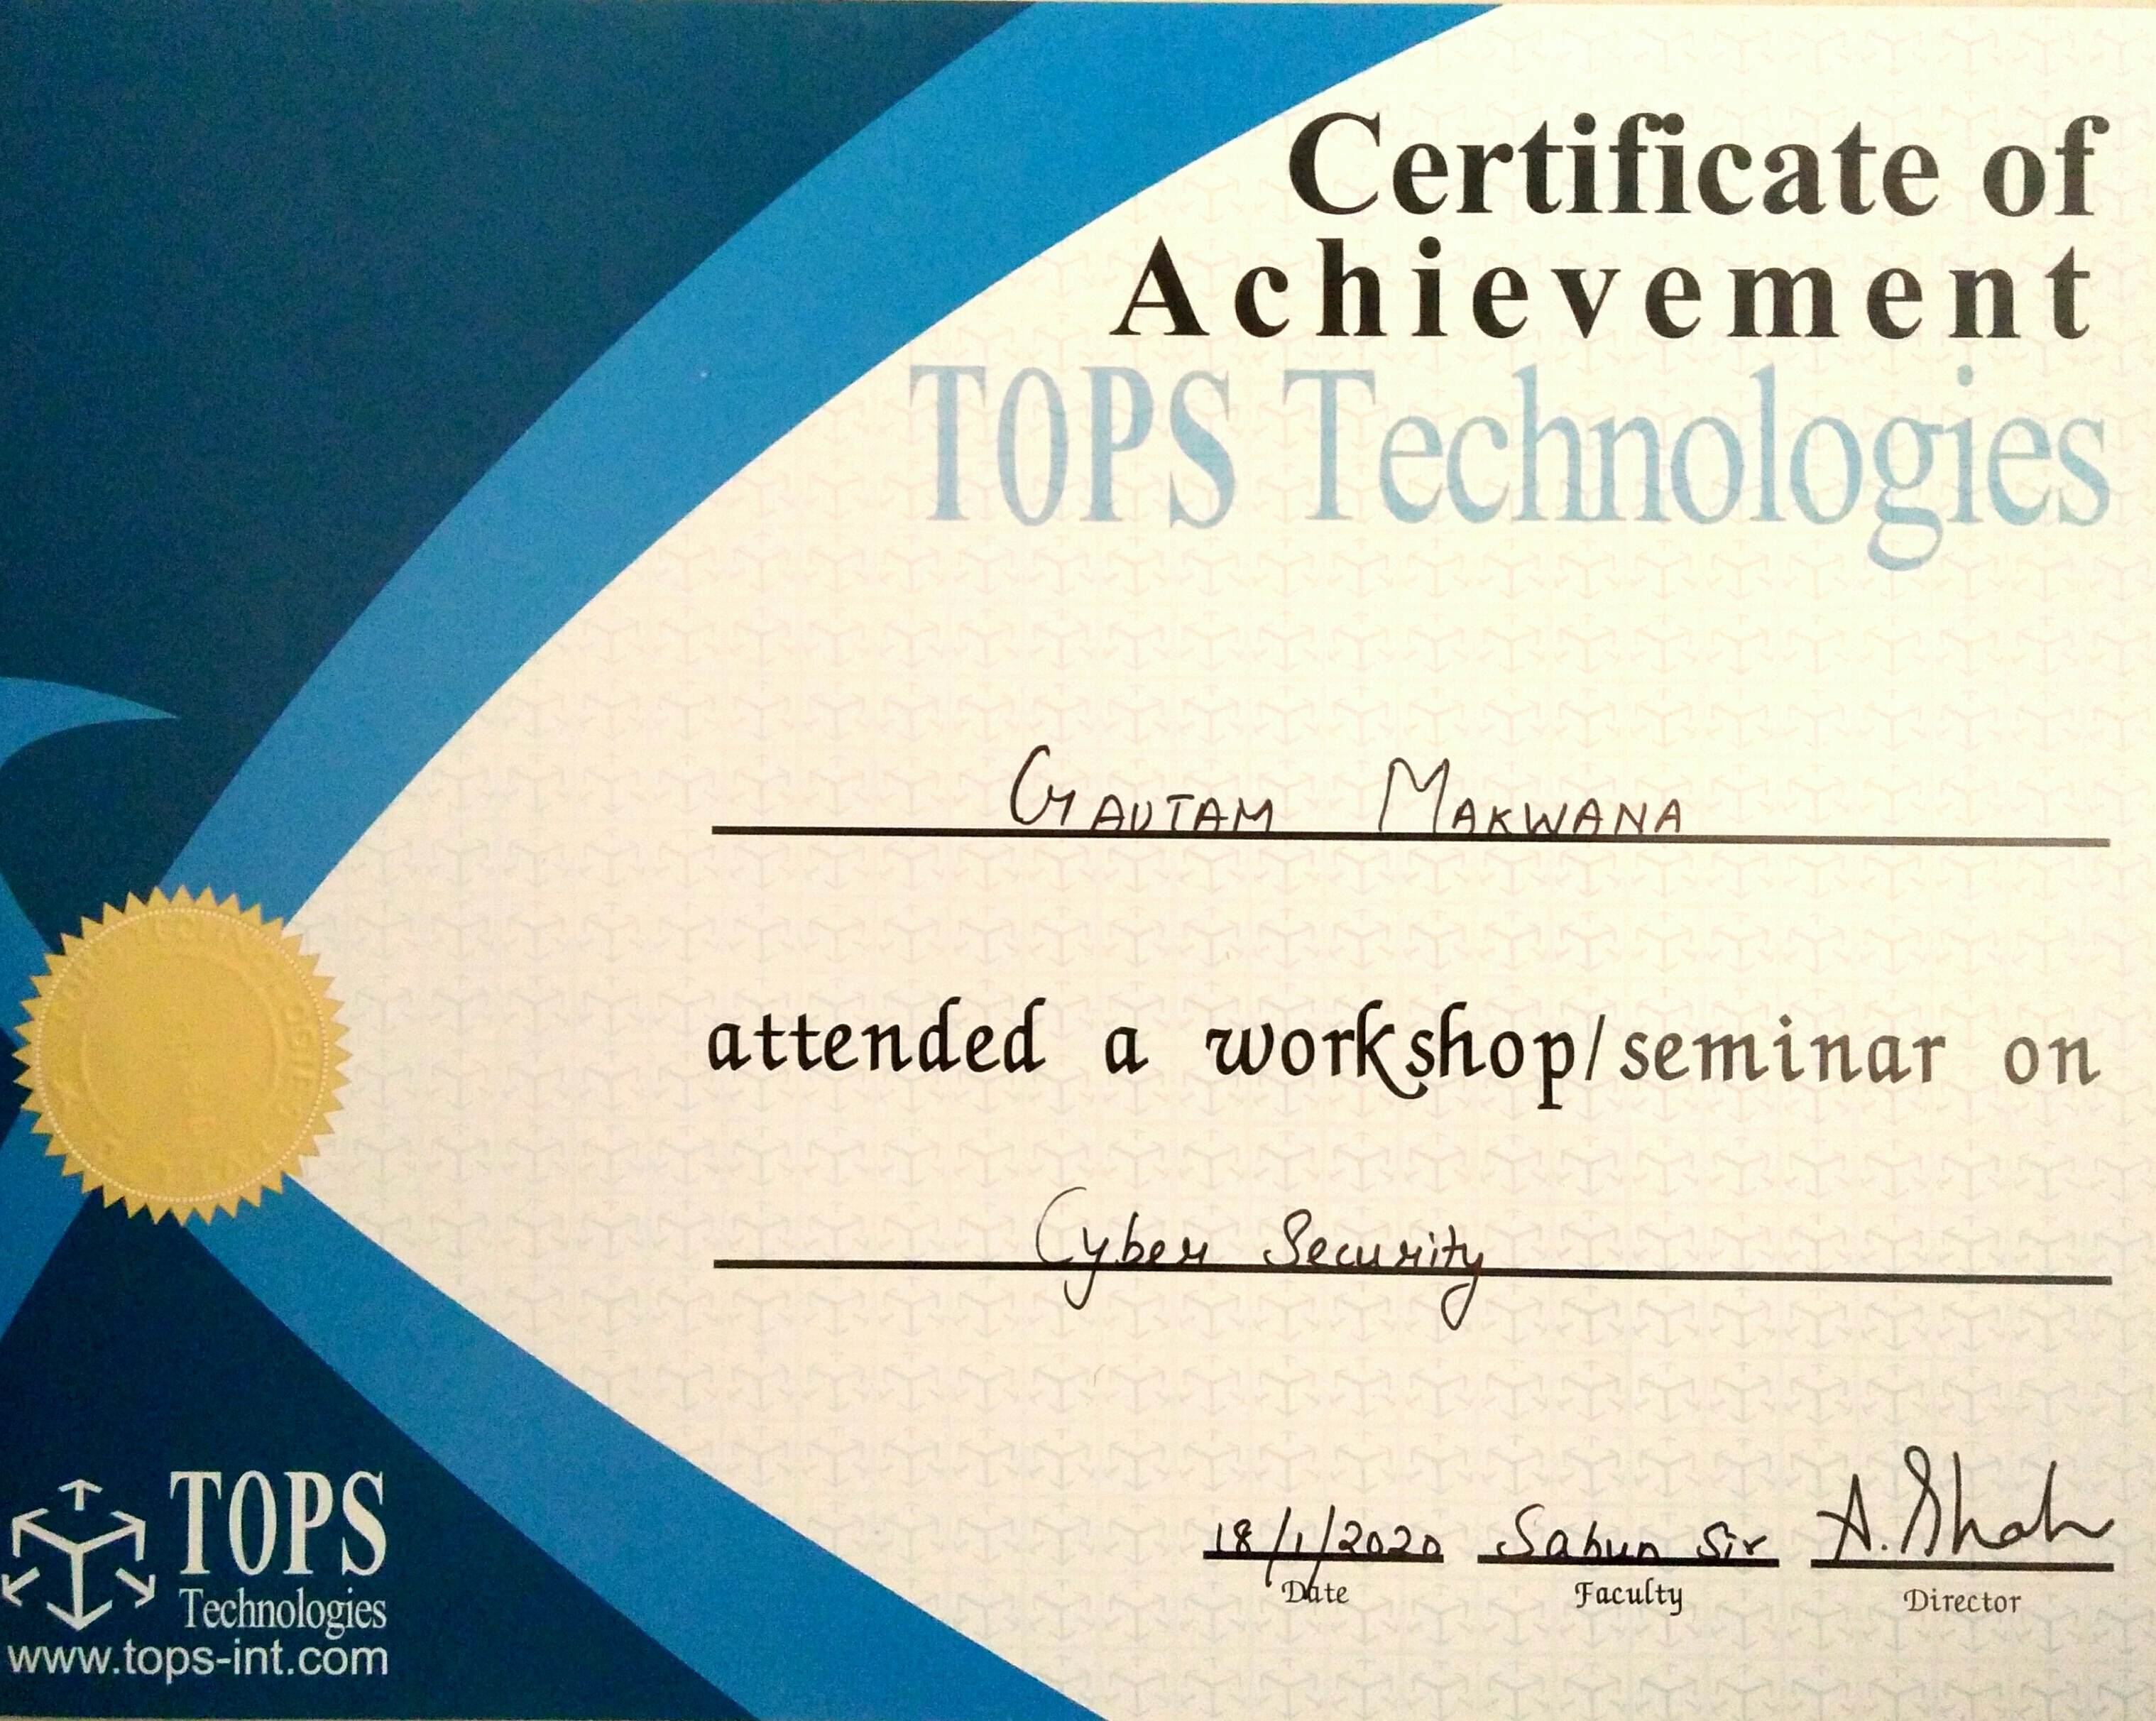 Certificate of
Achievement
TOPS Technologies
GAUTAM MAKWANA
attended a workshop/seminar on
Cyber Security
18/1/2020 Sahun Sir A. Shah
Date Faculty Director
TOPS
Technologies
www.tops-int.com